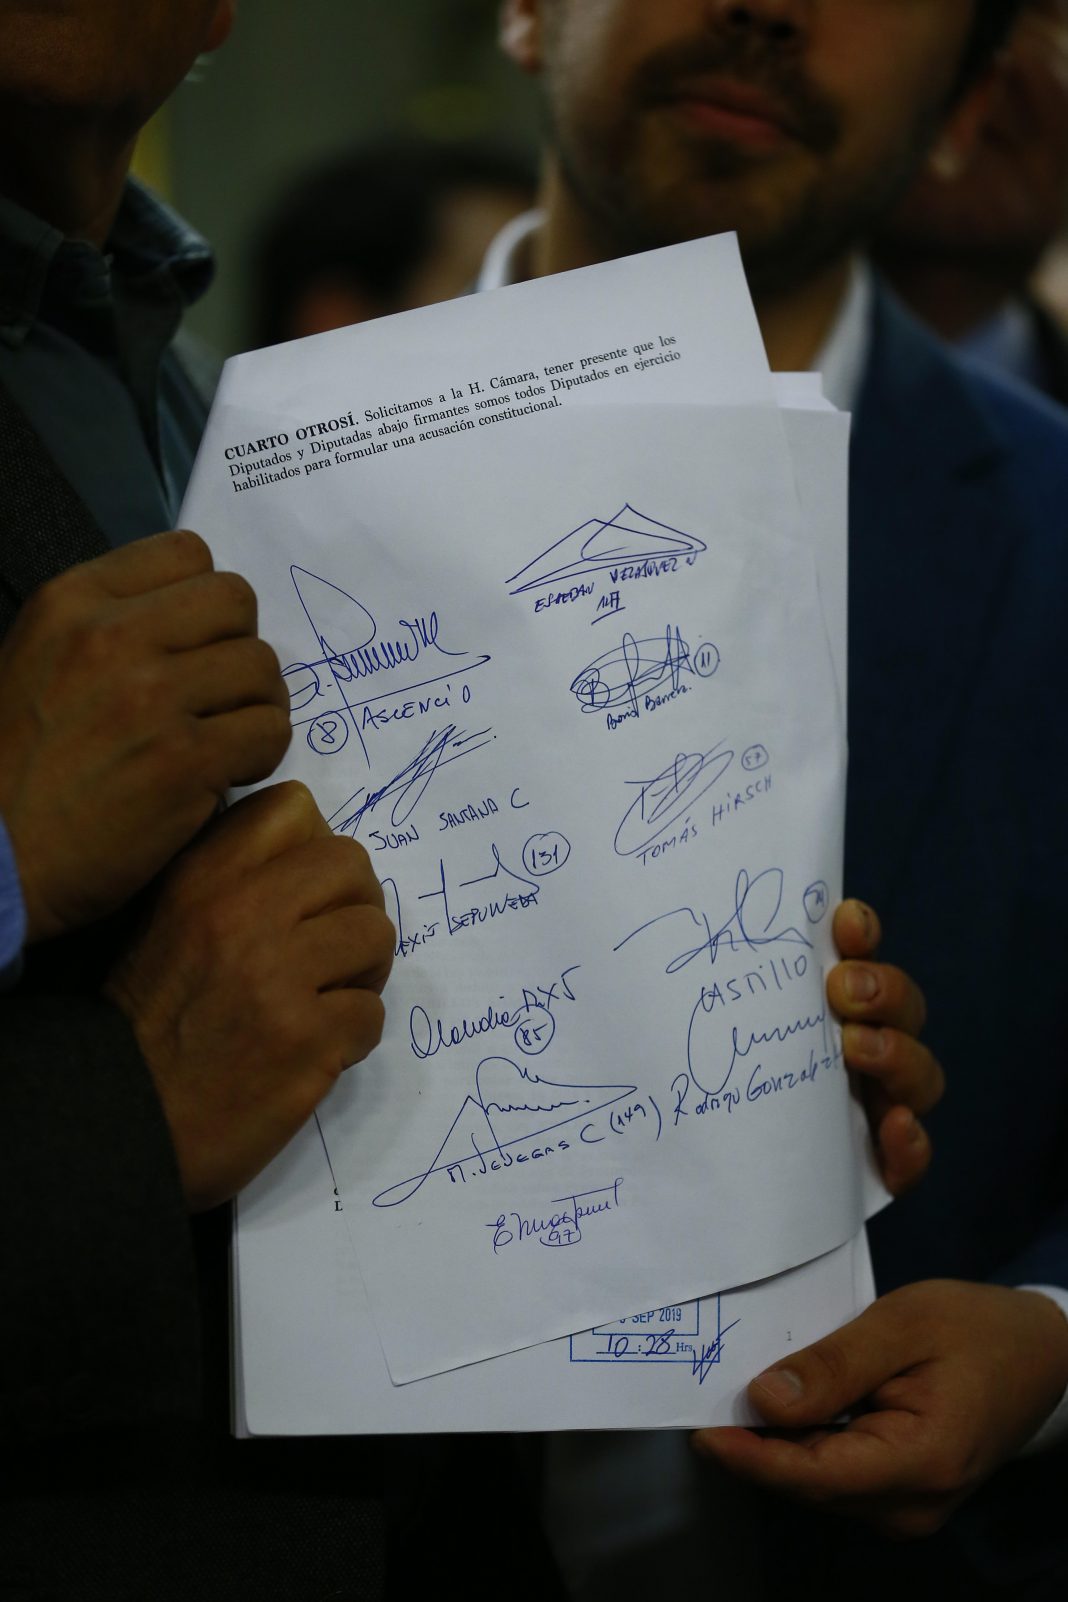 CUARTO OTROSÍ. Solicitamos a la H. Cámara, tener presente que los
Diputados y Diputadas abajo firmantes somos todos Diputados en ejercicio
habilitados para formular una acusación constitucional.
ESTEBAN VELASQUEZ N
8 ASCENCIO
11
Boris Barrera.
JUAN SANTANA C
57
TOMÁS HIRSCH
131
EXIS SEPULVEDA
CASTILLO
Claudia MIX
85
M. VENEGAS C (149)
Rodrigo Gonzalez
97
SEP 2019
10:28 Hrs
1